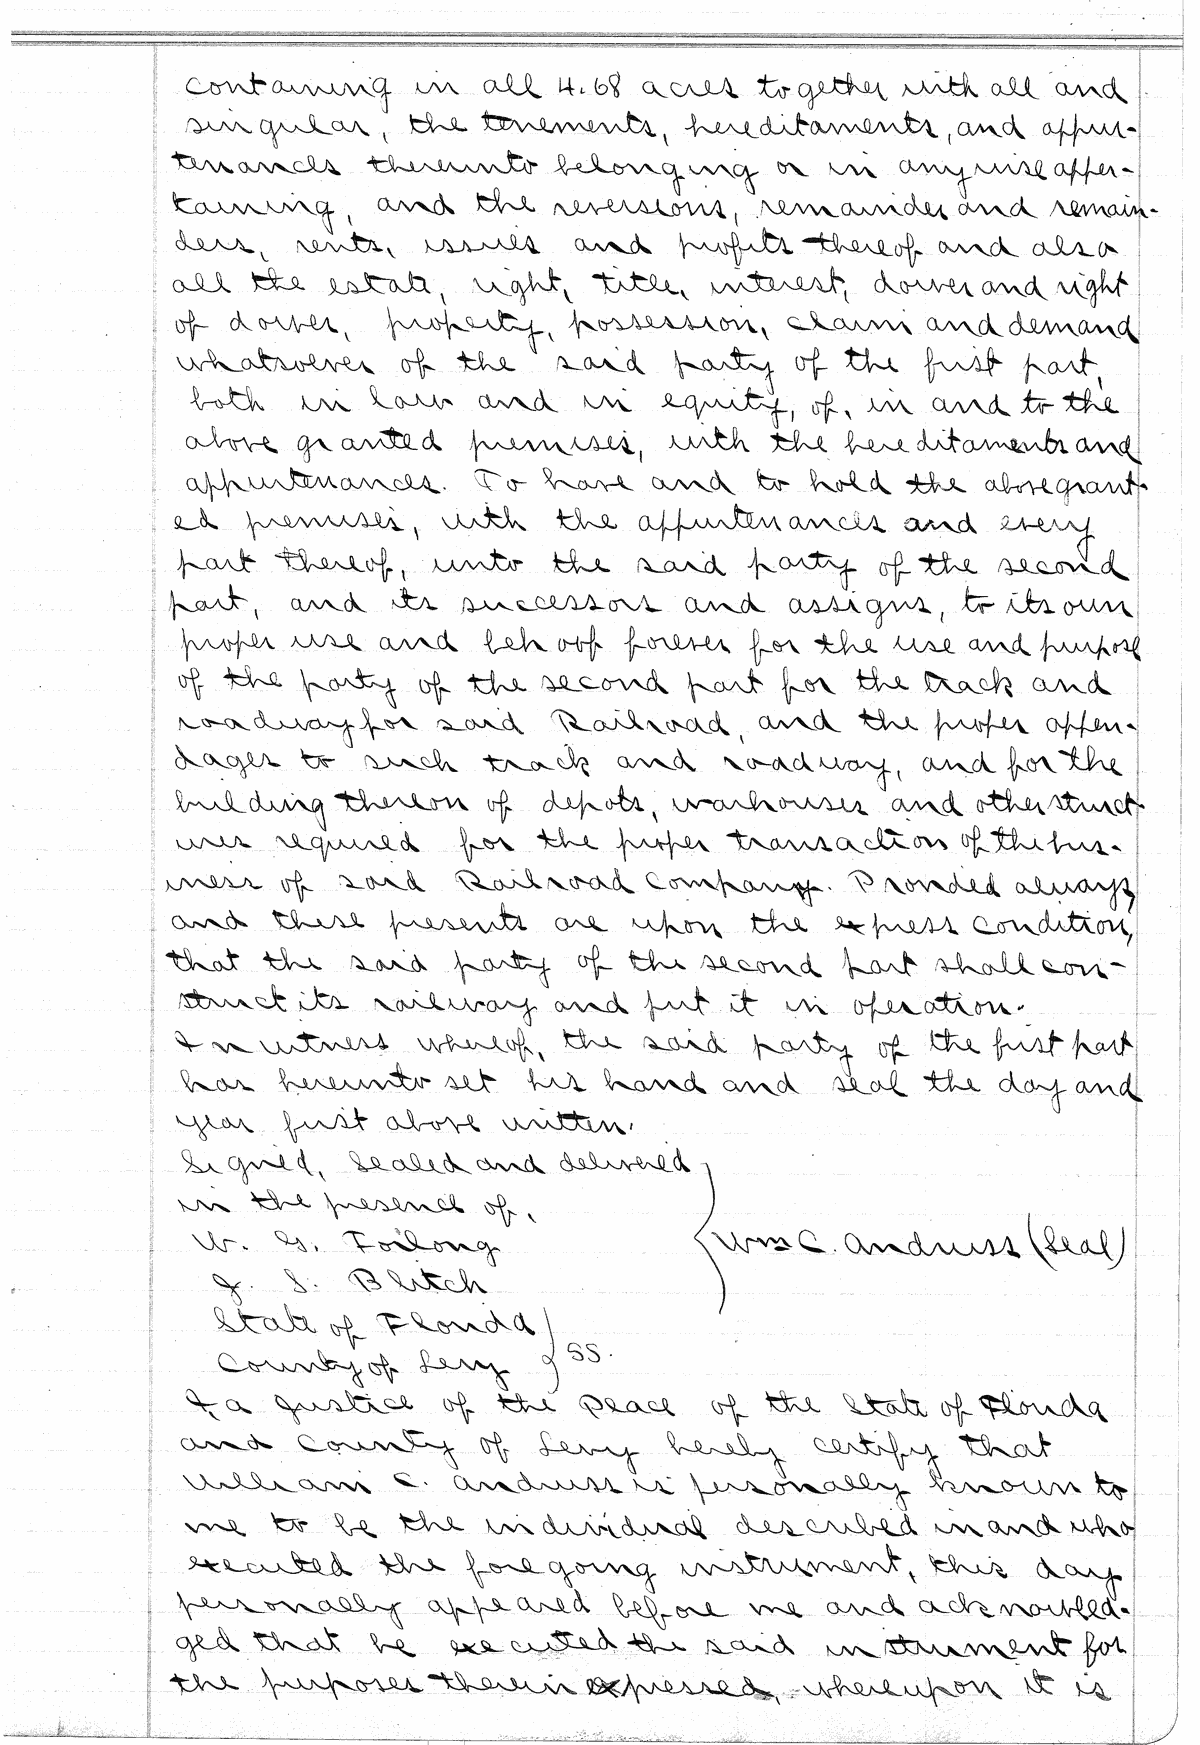 containing in all 4.68 acres together with all and
singular, the tenements, hereditaments, and appur-
tenances thereunto belonging or in anywise apper-
taining, and the reversions, remainder and remain-
ders, rents, issues and profits thereof and also
all the estate, right, title, interest, dower and right
of dower, property, possession, claim and demand
whatsoever of the said party of the first part,
both in law and in equity, of, in and to the
above granted premises, with the hereditaments and
appurtenances. To have and to hold the above grant-
ed premises, with the appurtenances and every
part thereof, unto the said party of the second
part, and its successors and assigns, to its own
proper use and behoof forever for the use and purpose
of the party of the second part for the track and
roadway for said Railroad, and the proper appen-
dages to such track and roadway, and for the
building thereon of depots, warhouses and other struct-
ures required for the proper transaction of the bus-
iness of said Railroad Company. Provided always
and these presents are upon the express condition,
that the said party of the second part shall con-
struct its railway and put it in operation.
In witness whereof, the said party of the first part
has hereunto set his hand and seal the day and
year first above written.
Signed, Sealed and delivered
in the presence of,
W. G.
Wm C. Andruss (Seal)
J. S. Blitch
State of Florida
County of Levy } SS.
I, a Justice of the Peace of the State of Florida
and County of Levy hereby certify that
William C. Andruss is personally known to
me to be the individual described in and who
executed the foregoing instrument, this day
personally appeared before me and acknowled-
ged that he executed the said instrument for
the purposes therein expressed, whereupon it is